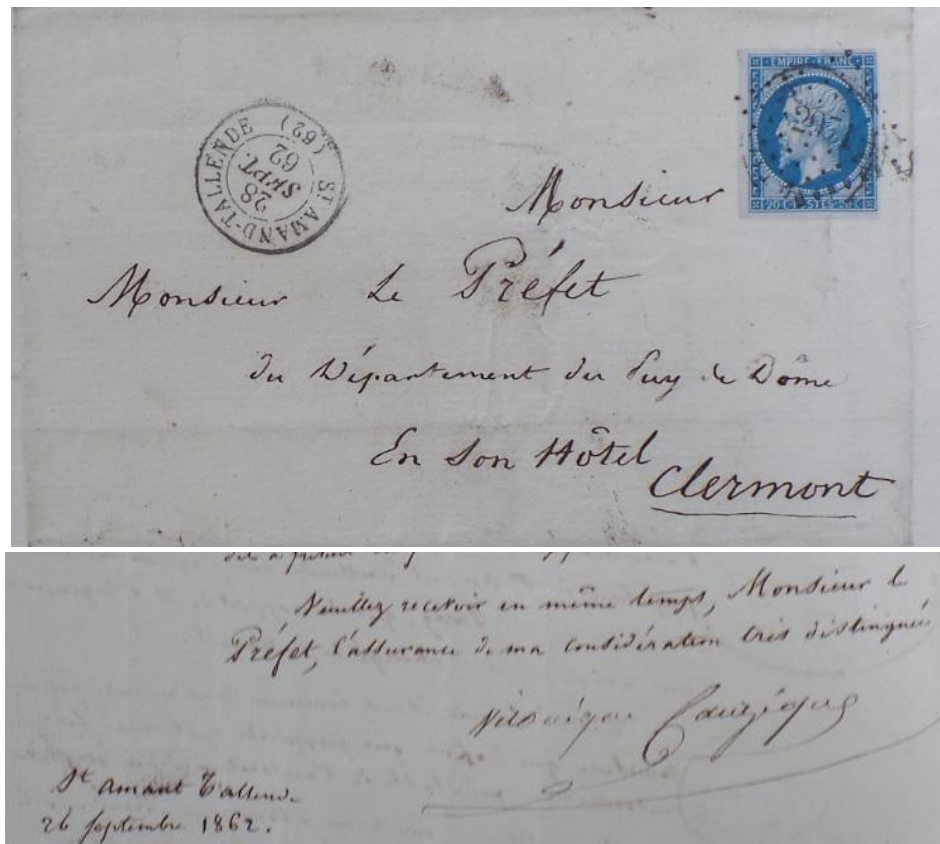 EMPIRE FRANC
20 C. POSTES 20 C.
ST AMAND-TALLENDE (62)
28
SEPT.
62
Monsieur
Monsieur Le Préfet
du Département du Puy de Dôme
En Son Hôtel
Clermont
Veuillez recevoir en même temps, Monsieur le
Préfet, l'assurance de ma considération très distinguée
St Amant Tallend.
26 Septembre 1862.